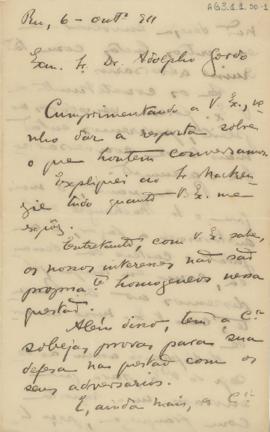 AG3.1.1.50-1
Rio, 6 - outº 911
Exm. Sr. Dr. Adolpho Gordo
Cumprimentando a V. Ex., ve-
nho dar a resposta sobre
o que hontem conversamos.
Expliquei ao Sr. Macken-
zie tudo quanto V. Ex. me
expôz.
Entretanto, como V. Ex. sabe,
os nossos interesses não são
propria.te homogeneos, nessa
questão.
Além disso, tem a C.ia
sobejas provas para sua
defesa na questão com os
seus adversarios.
E, ainda mais, a C.ia